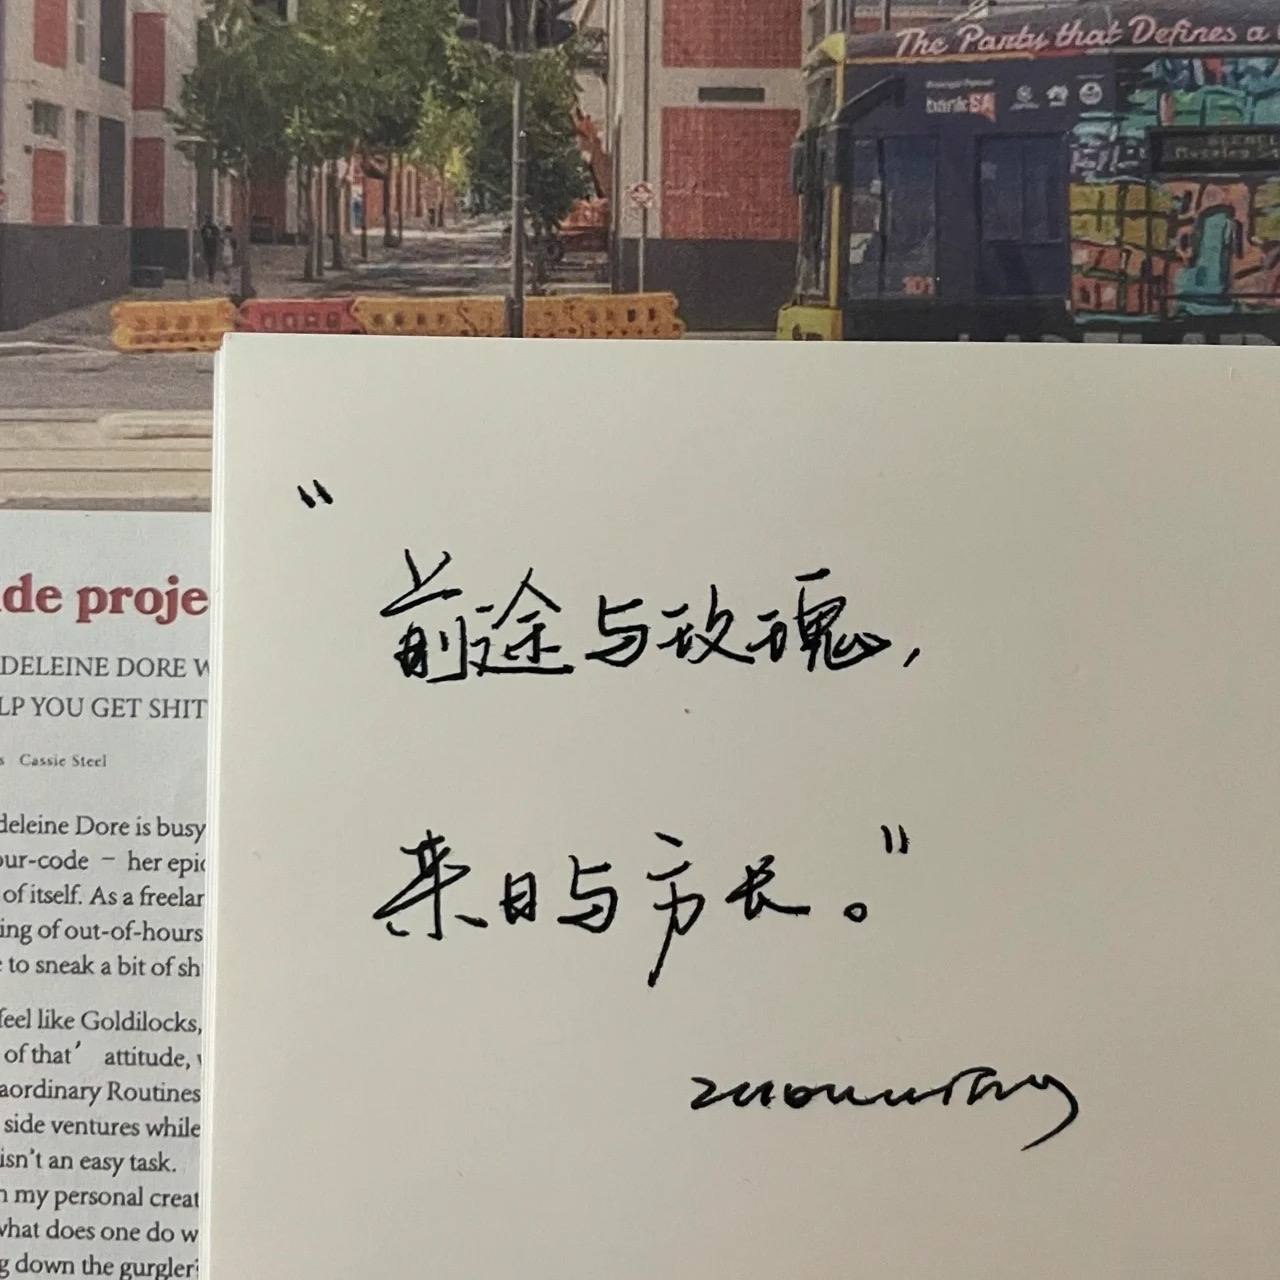 The Party that Defines a
bankSA
101
de proje
DELEINE DORE W
LP YOU GET SHIT
s Cassie Steel
deleine Dore is busy
our-code – her epic
of itself. As a freelan
ing of out-of-hours
to sneak a bit of sh
feel like Goldilocks,
of that’ attitude,
aordinary Routines
side ventures while
isn't an easy task.
n my personal creat
what does one do w
g down the gurgler
“
前途与玫瑰，
来日与方长。”